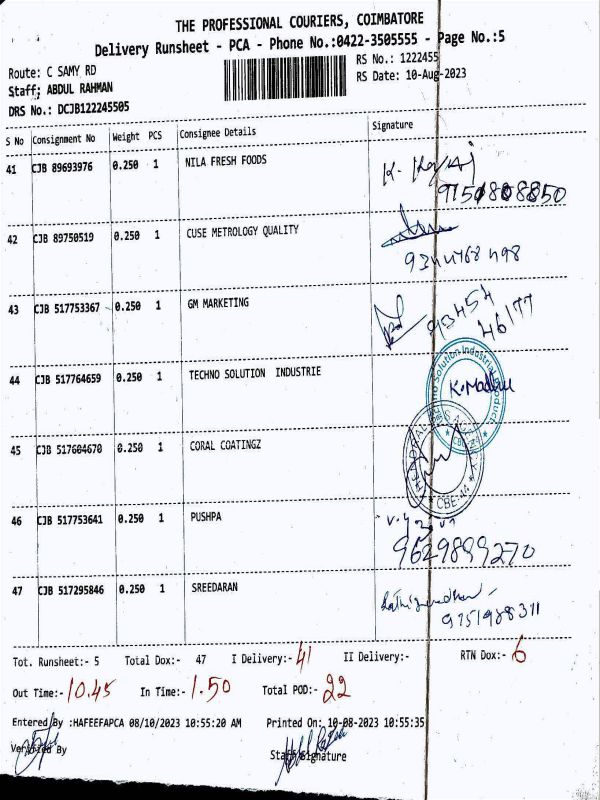 THE PROFESSIONAL COURIERS, COIMBATORE
Delivery Runsheet - PCA - Phone No.:0422-3505555 - Page No.:5
Route: C SAMY RD
RS No.: 1222455
Staff; ABDUL RAHMAN
RS Date: 10-Aug-2023
DRS No.: DCJB122245505
S No Consignment No Weight PCS Consignee Details Signature
41 CJB 89693976 0.250 1 NILA FRESH FOODS
42 CJB 89750519 0.250 1 CUSE METROLOGY QUALITY
43 CJB 517753367 0.250 1 GM MARKETING
93454
46177
44 CJB 517764659 0.250 1 TECHNO SOLUTION INDUSTRIE
45 CJB 517604670 0.250 1 CORAL COATINGZ
46 CJB 517753641 0.250 1 PUSHPA
9629899270
47 CJB 517295846 0.250 1 SREEDARAN
9751988311
Tot. Runsheet:- 5 Total Dox:- 47 I Delivery:- 41 II Delivery:- RTN Dox:- 6
Out Time:- 10.45 In Time:- 1.50 Total POD:- 22
Entered By :HAFEEFAPCA 08/10/2023 10:55:20 AM Printed On: 10-08-2023 10:55:35
Verified By Staff Signature